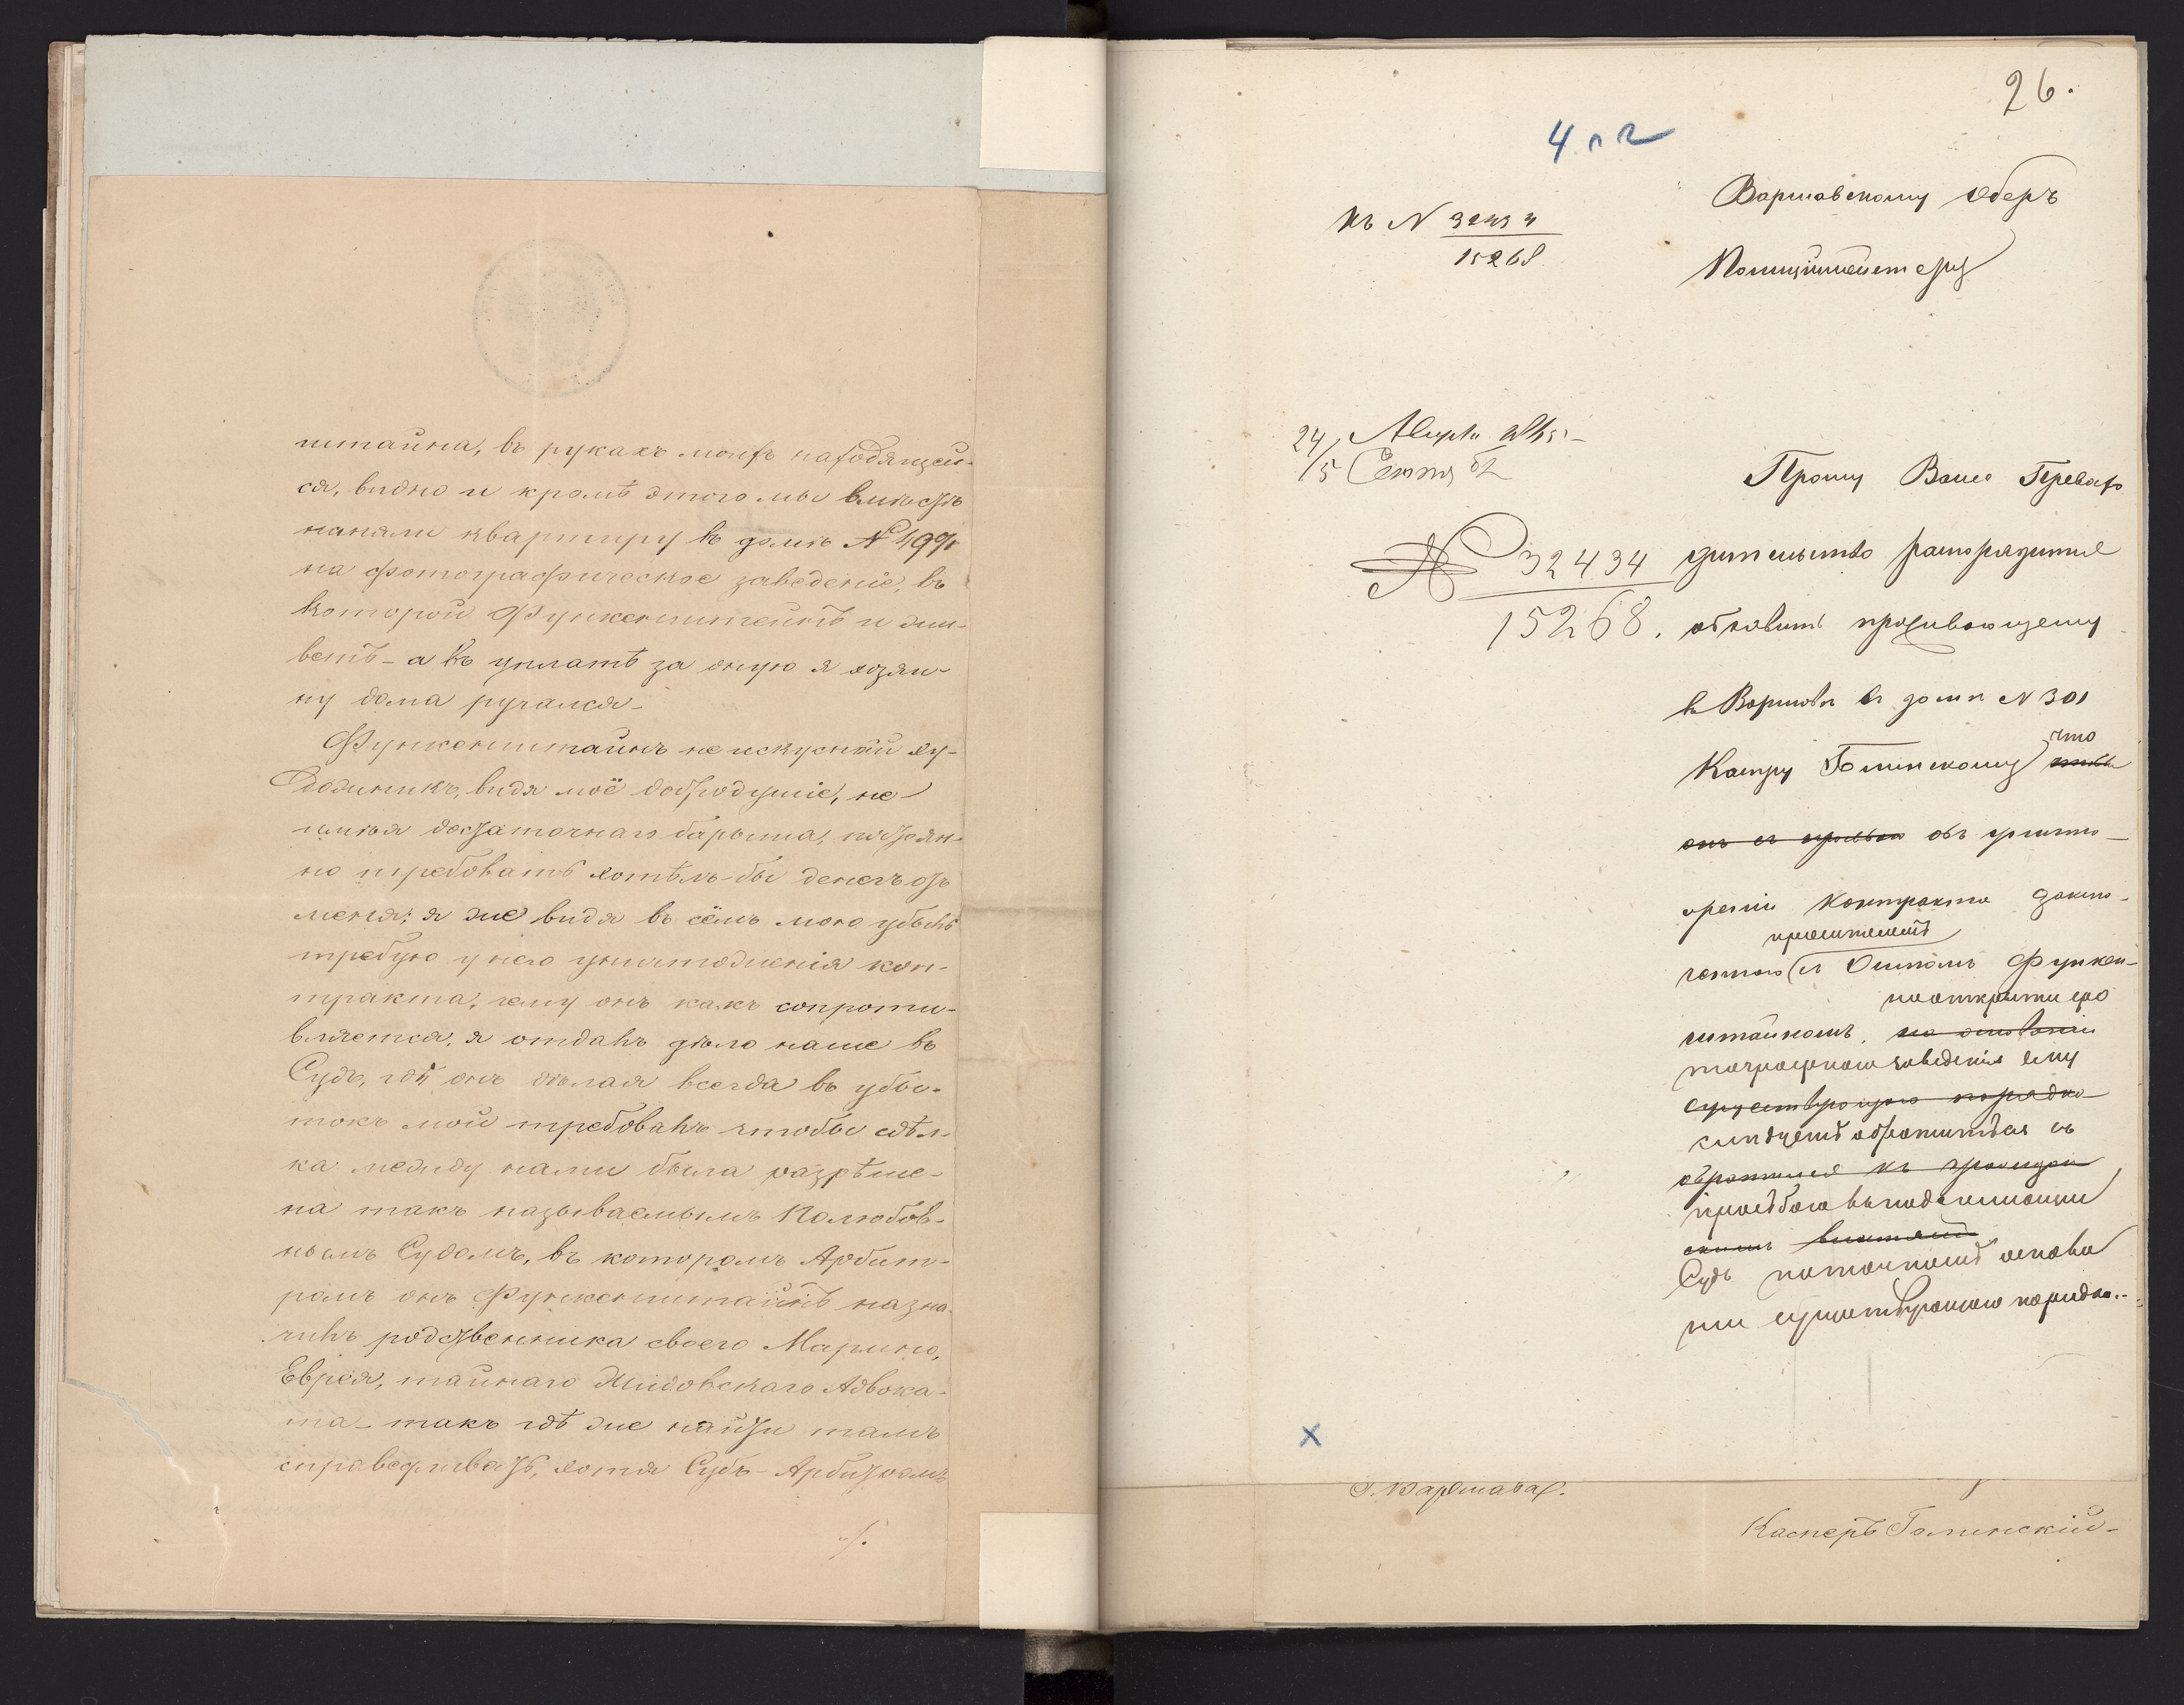 штайна, въ рукахъ моихъ находящей-
ся, видно и кромѣ этого мы вмѣстѣ
наняли квартиру въ домѣ № 499
на фотографическое заведеніе, въ
которой Функенштейнъ и жи-
ветъ - а въ уплатѣ за оную я хозяи-
ну дома ручался.-
Функенштайнъ не искусный ху-
дожникъ, видя моё добродушіе, не
имѣя достаточнаго барыша, постоян-
но требовать хотѣлъ-бы денегъ отъ
меня; я же видя въ сёмъ мою убыль
требую у него уничтоженія кон-
тракта, чему онъ какъ сопроти-
вляется, я отдалъ дѣло наше въ
Судъ, гдѣ онъ желая всегда въ убы-
токъ мой требовалъ чтобы сдѣл-
ка между нами была разрѣше-
на такъ называемымъ Полюбов-
нымъ Судомъ, въ которомъ Арбит-
ромъ онъ Функенштайнъ назна-
чилъ родственника своего
Еврея, тайнаго Жидовскаго Адвока-
та - такъ гдѣ же найти тамъ
справедливость, хотя Судъ - Арбитромъ
./.
26.
4
Къ N 32434
15268
Варшавскому Оберъ
Полицiймейстеру
24/5
Сентяб
Прошу Ваше Превосхо
№ 32434
15268.
дительство распорядиться
объявить проживающему
въ Варшавѣ въ домѣ N 301
что
Каспру Голинскому
онъ съ объ уничто-
женiи контракта заклю-
ченнаго съ Функен-
по открытiи его
штайномъ, на основанiи
заведенiя ему
существующаго порядка
слѣдуетъ обратиться съ
обратился къ
просьбою въ подлежащiй
Судъ на точномъ основа
нiи существующаго порядка.-
x
Г. Варшава.
Касперъ Голинскій-